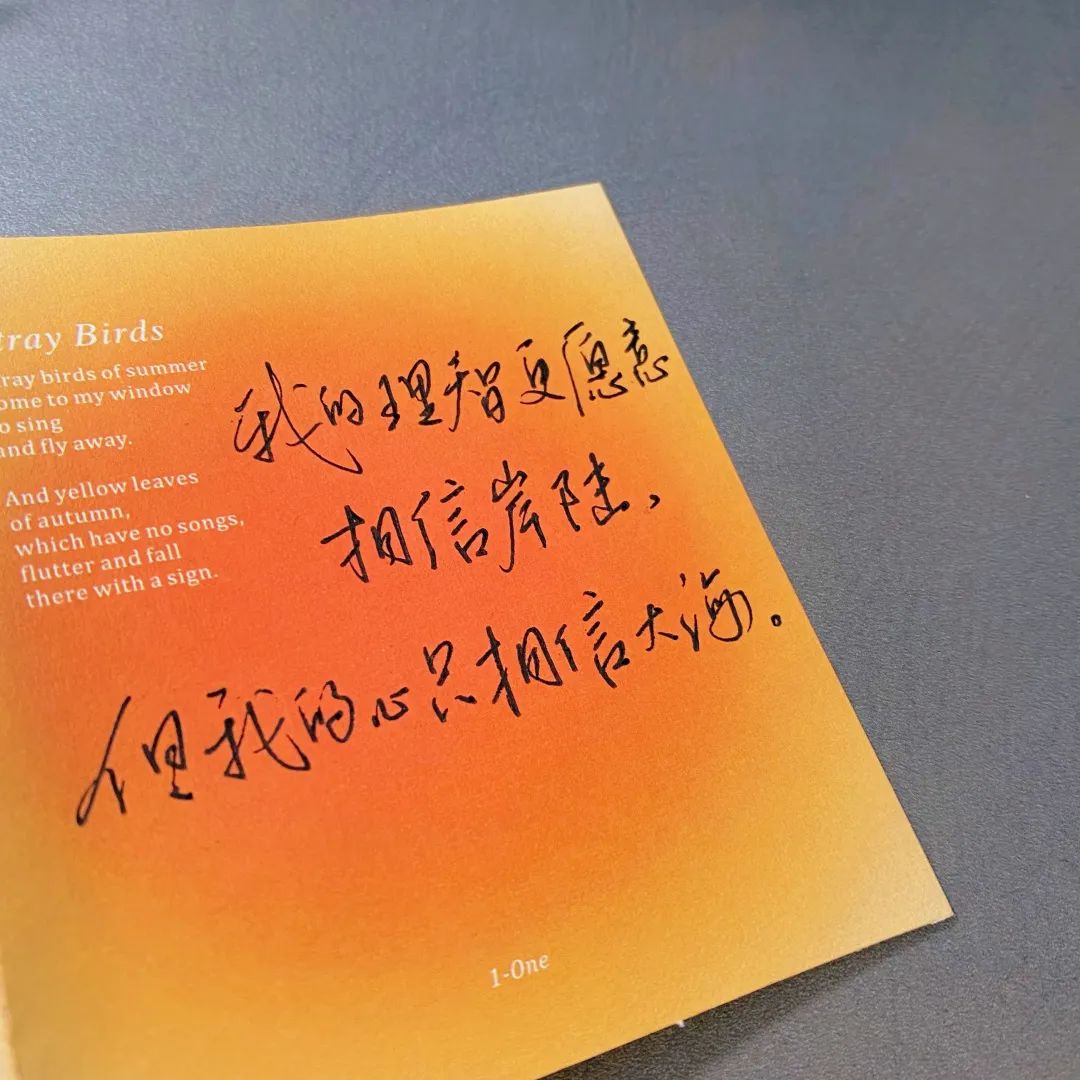 tray Birds
tray birds of summer
ome to my window
o sing
and fly away.
And yellow leaves
of autumn,
which have no songs,
flutter and fall
there with a sign.
我的理智更愿意
相信岸陆,
但我的心只相信大海。
1-One